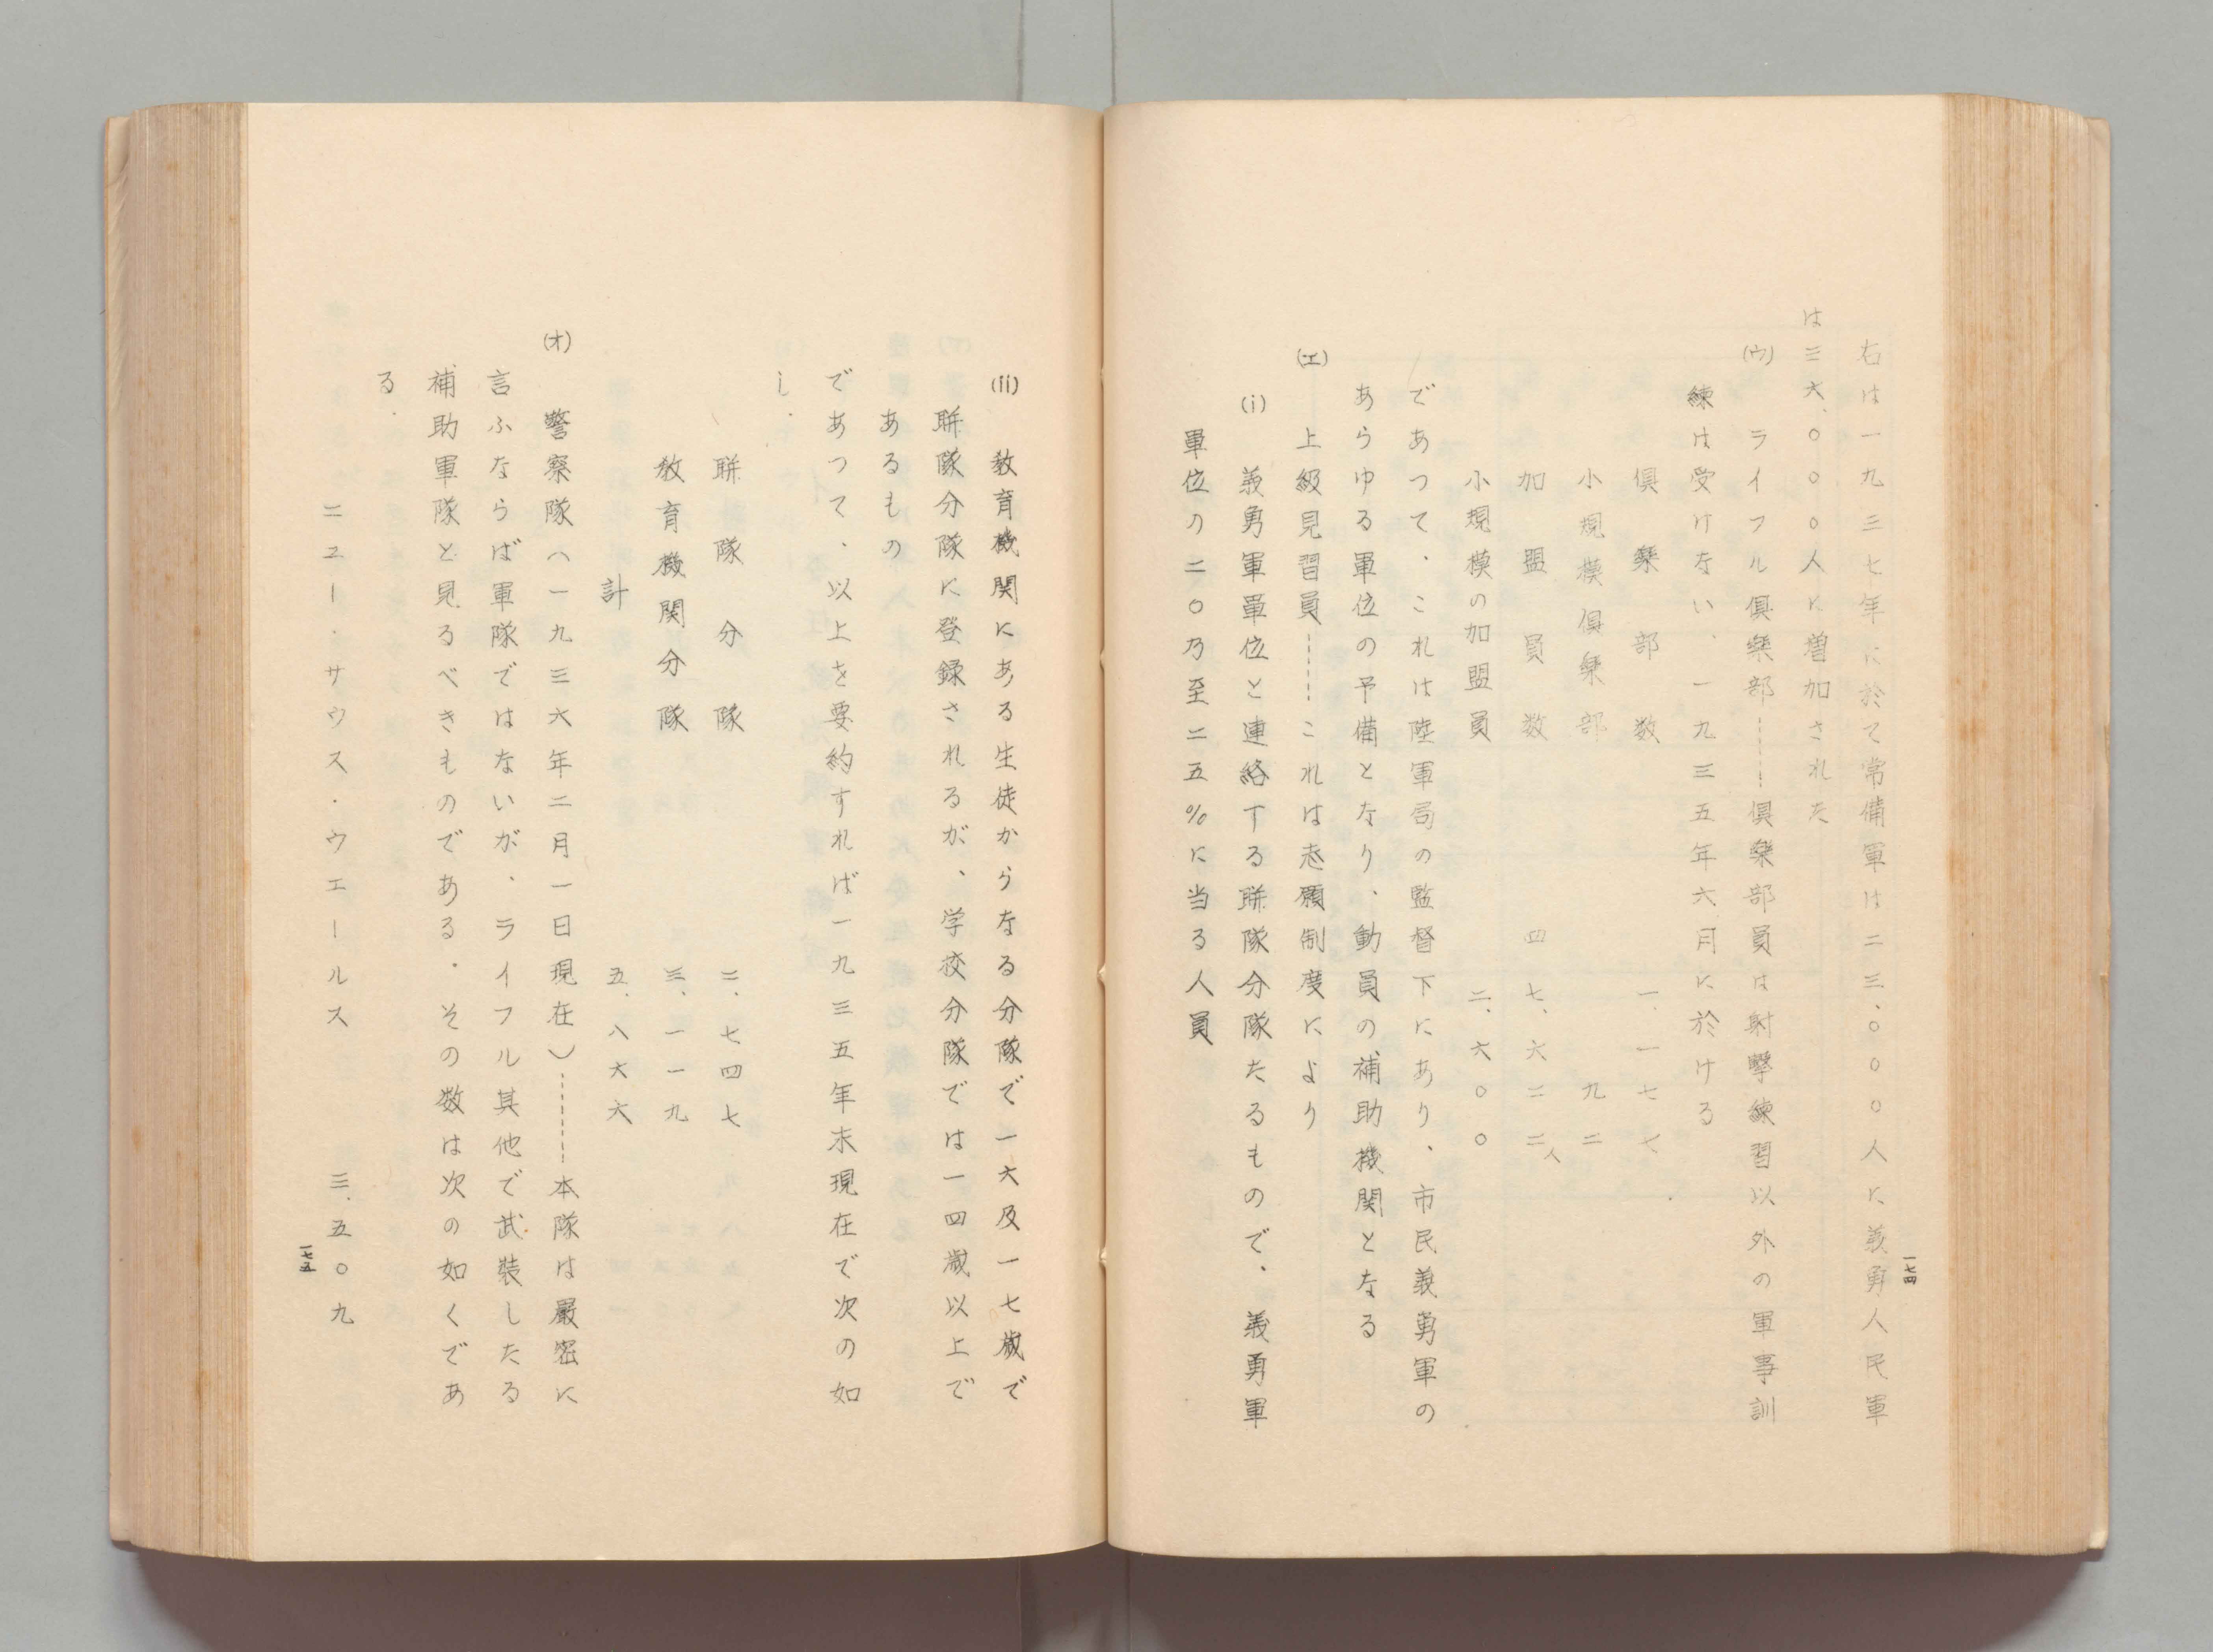 右は一九三七年に於て常備軍は二三、〇〇〇人に義勇人民軍
は三六、〇〇〇人に増加された
(ウ) ライフル倶楽部------倶楽部員は射撃練習以外の軍事訓
練は受けない、一九三五年六月に於ける
倶楽部数 一、一七七
小規模倶楽部 九二
加盟員数 四七、六二二人
小規模の加盟員 二、六〇〇
であつて、これは陸軍局の監督下にあり、市民義勇軍の
あらゆる軍位の予備となり、動員の補助機関となる
(エ) 上級見習員------これは志願制度により
(i) 義勇軍単位と連絡する聯隊分隊たるもので、義勇軍
単位の二〇乃至二五%に当る人員
一七四
(ii) 教育機関にある生徒からなる分隊で一六及一七歳で
聯隊分隊に登録されるが、学校分隊では一四歳以上で
あるもの
であつて、以上を要約すれば一九三五年末現在で次の如
し.
聯隊分隊 二、七四七
教育機関分隊 三、一一九
計 五、八六六
(オ) 警察隊(一九三六年二月一日現在)------本隊は厳密に
言ふならば軍隊ではないが、ライフル其他で武装したる
補助軍隊と見るべきものである.その数は次の如くであ
る.
ニユー・サウス・ウエールス 三、五〇九
一七五